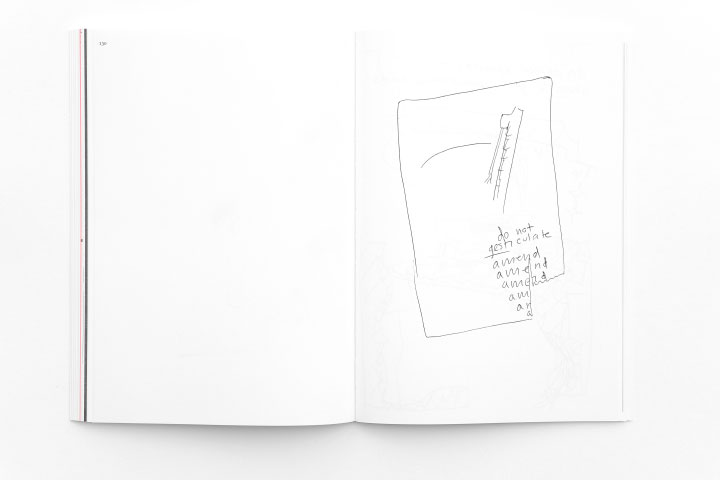 130
do not
gesticulate
amend
amend
amend
am
an
a